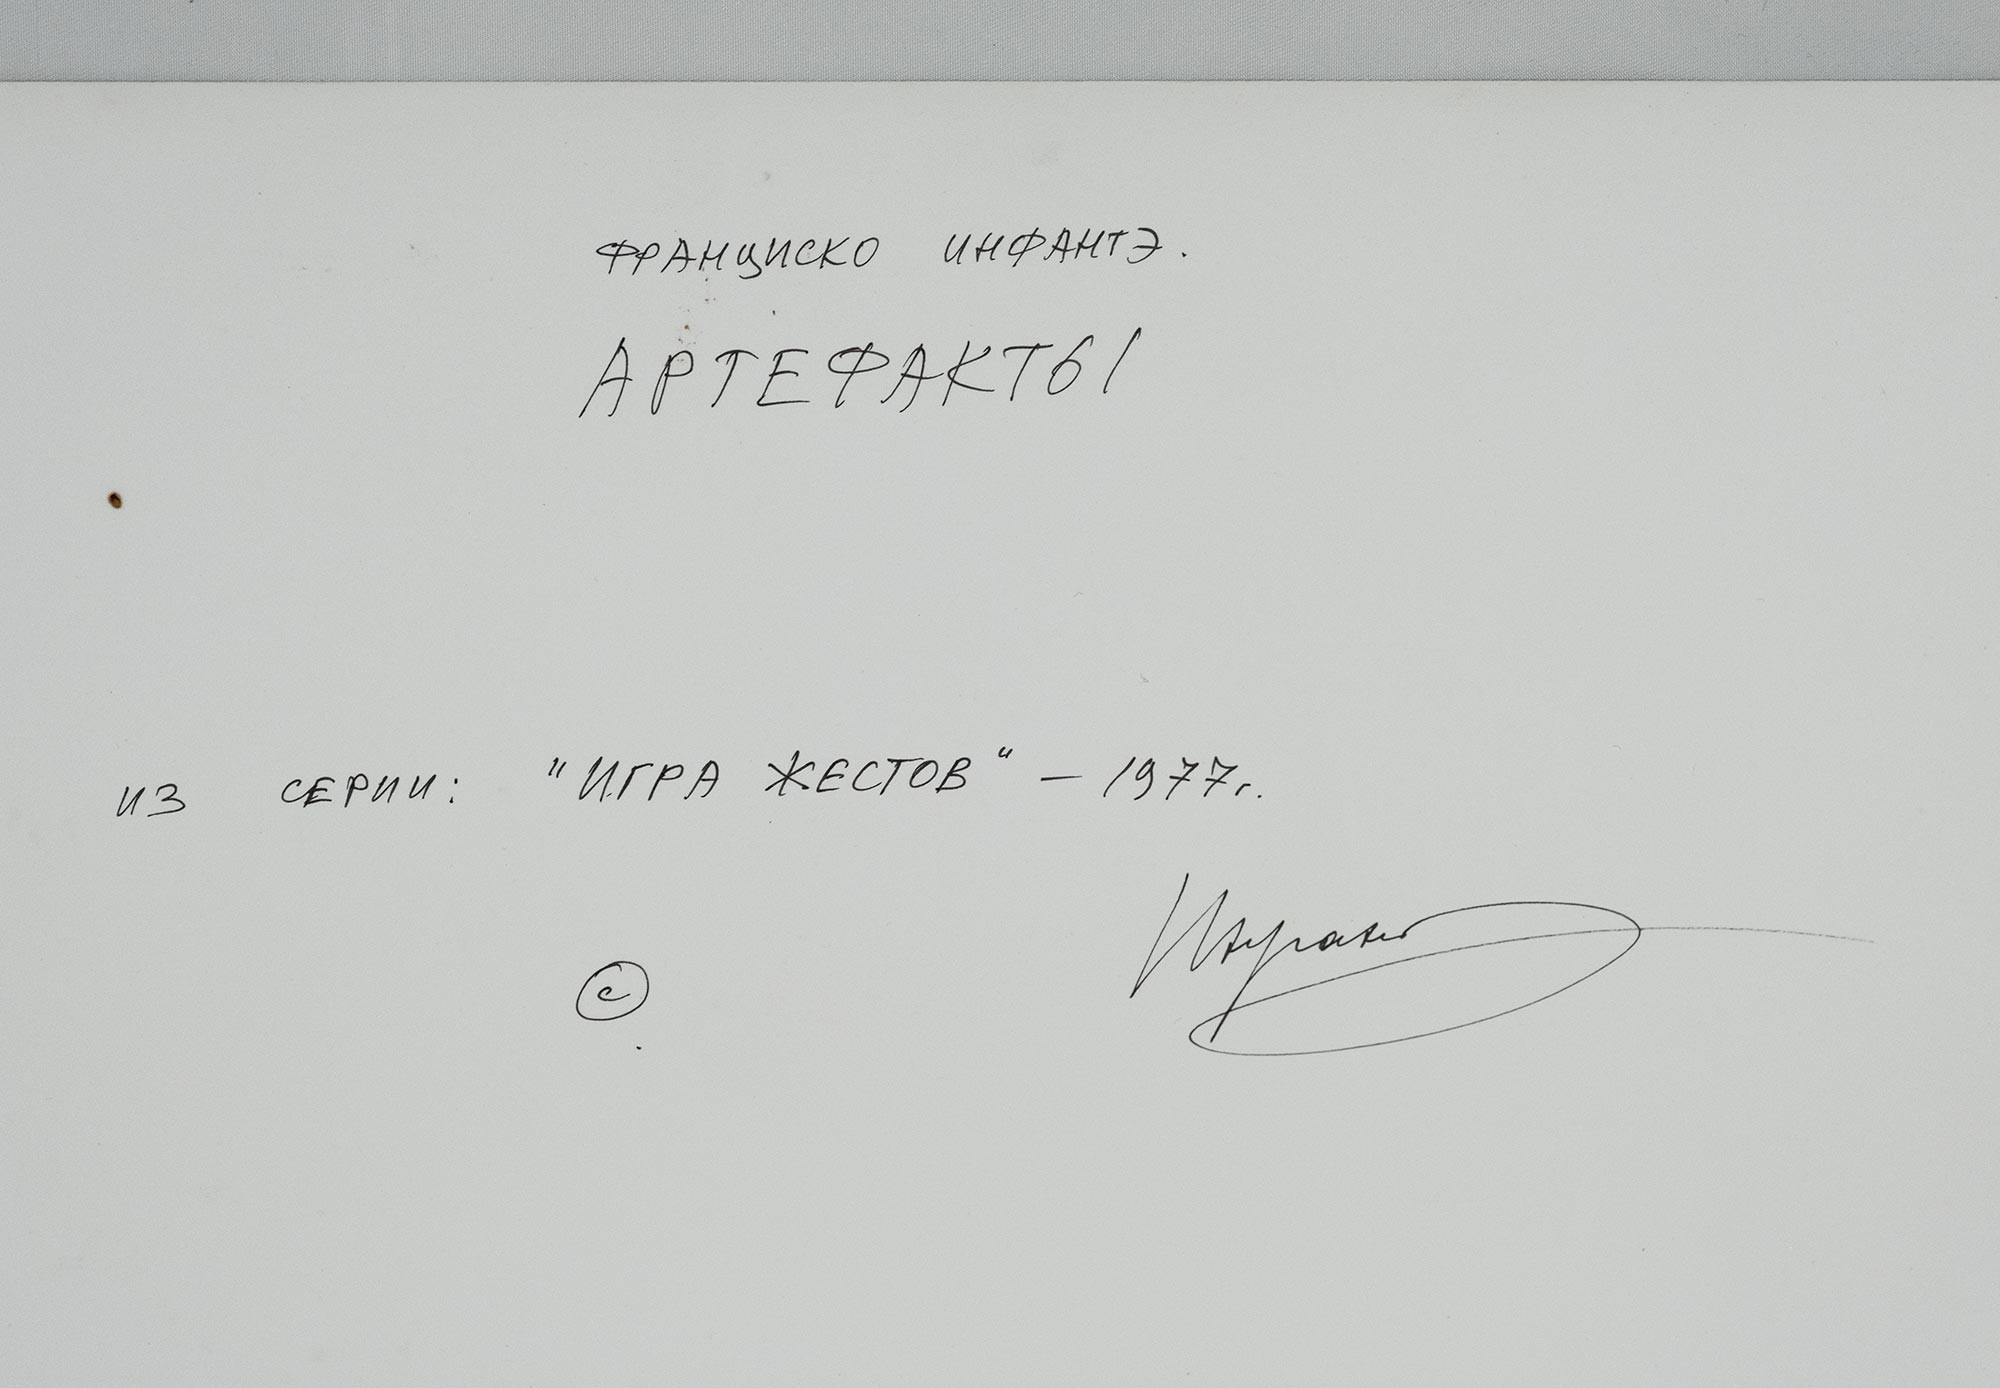 ФРАНЦИСКО ИНФАНТЭ.
АРТЕФАКТЫ
ИЗ СЕРИИ: "ИГРА ЖЕСТОВ" – 1977г.
©